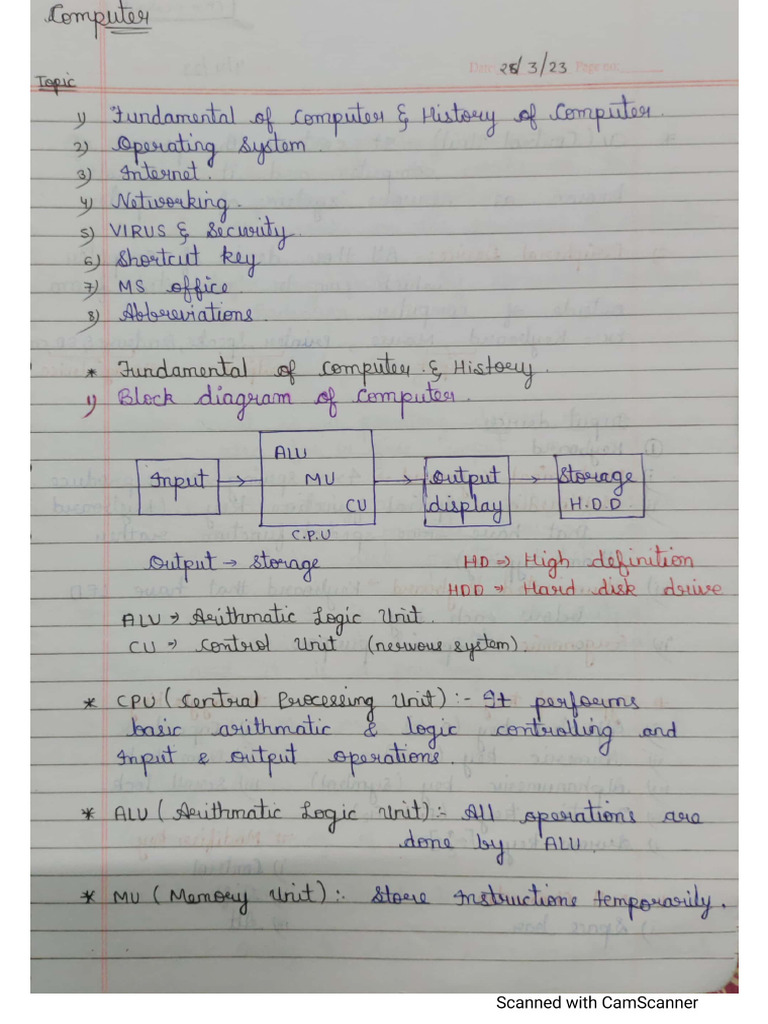 Computer
Date: 25/3/23 Page no:
Topic
1) Fundamental of Computer & History of Computer.
2) Operating System
3) Internet.
4) Networking.
5) VIRUS & Security.
6) Shortcut key
7) MS office.
8) Abbreviations.
* Fundamental of Computer & History.
1) Block diagram of Computer.
ALU
Input → MU → Output → Storage
CU display H.D.D.
C.P.U
Output → Storage HD → High definition
HDD → Hard disk drive
ALU → Arithmatic Logic Unit.
CU → Control Unit (nervous system).
* CPU (Central Processing Unit) :- It performs
basic arithmatic & logic controlling and
Input & output operations.
* ALU (Arithmatic Logic Unit) :- All operations are
done by ALU.
* MU (Memory Unit) :- Store Instructions temporarily.
Scanned with CamScanner